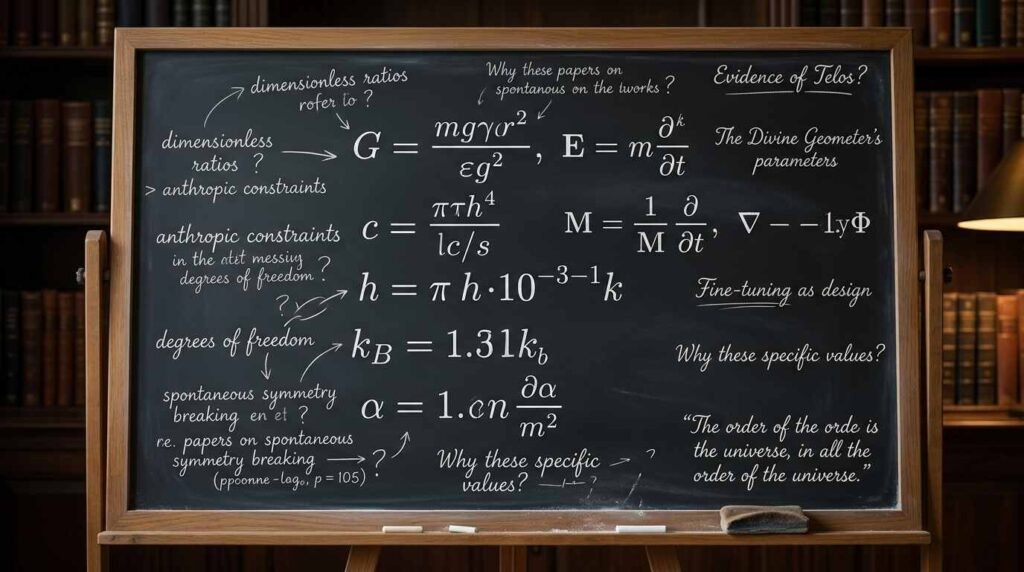 dimensionless ratios
refer to ?
Why these papers on
spontanous on the tworks ?
Evidence of Telos?
dimensionless
ratios ?
> anthropic constraints
G = mgγαr² / εg² , E = m ∂ᵏ/∂t
The Divine Geometer's
parameters
anthropic constraints
in the messiny
degrees of freedom ?
c = πτh⁴ / lc/s
M = 1/M ∂/∂t, ∇ − − 1.yΦ
?
h = π h·10⁻³⁻¹k
Fine-tuning as design
degrees of freedom
k_B = 1.31k_b
Why these specific values?
spontaneous symmetry
breaking en et ?
α = 1.cn ∂α/m²
re. papers on spontaneous
symmetry breaking → ?
p = 105)
Why these specific → ?
values? ?
"The order of the orde is
the universe, in all the
order of the universe."